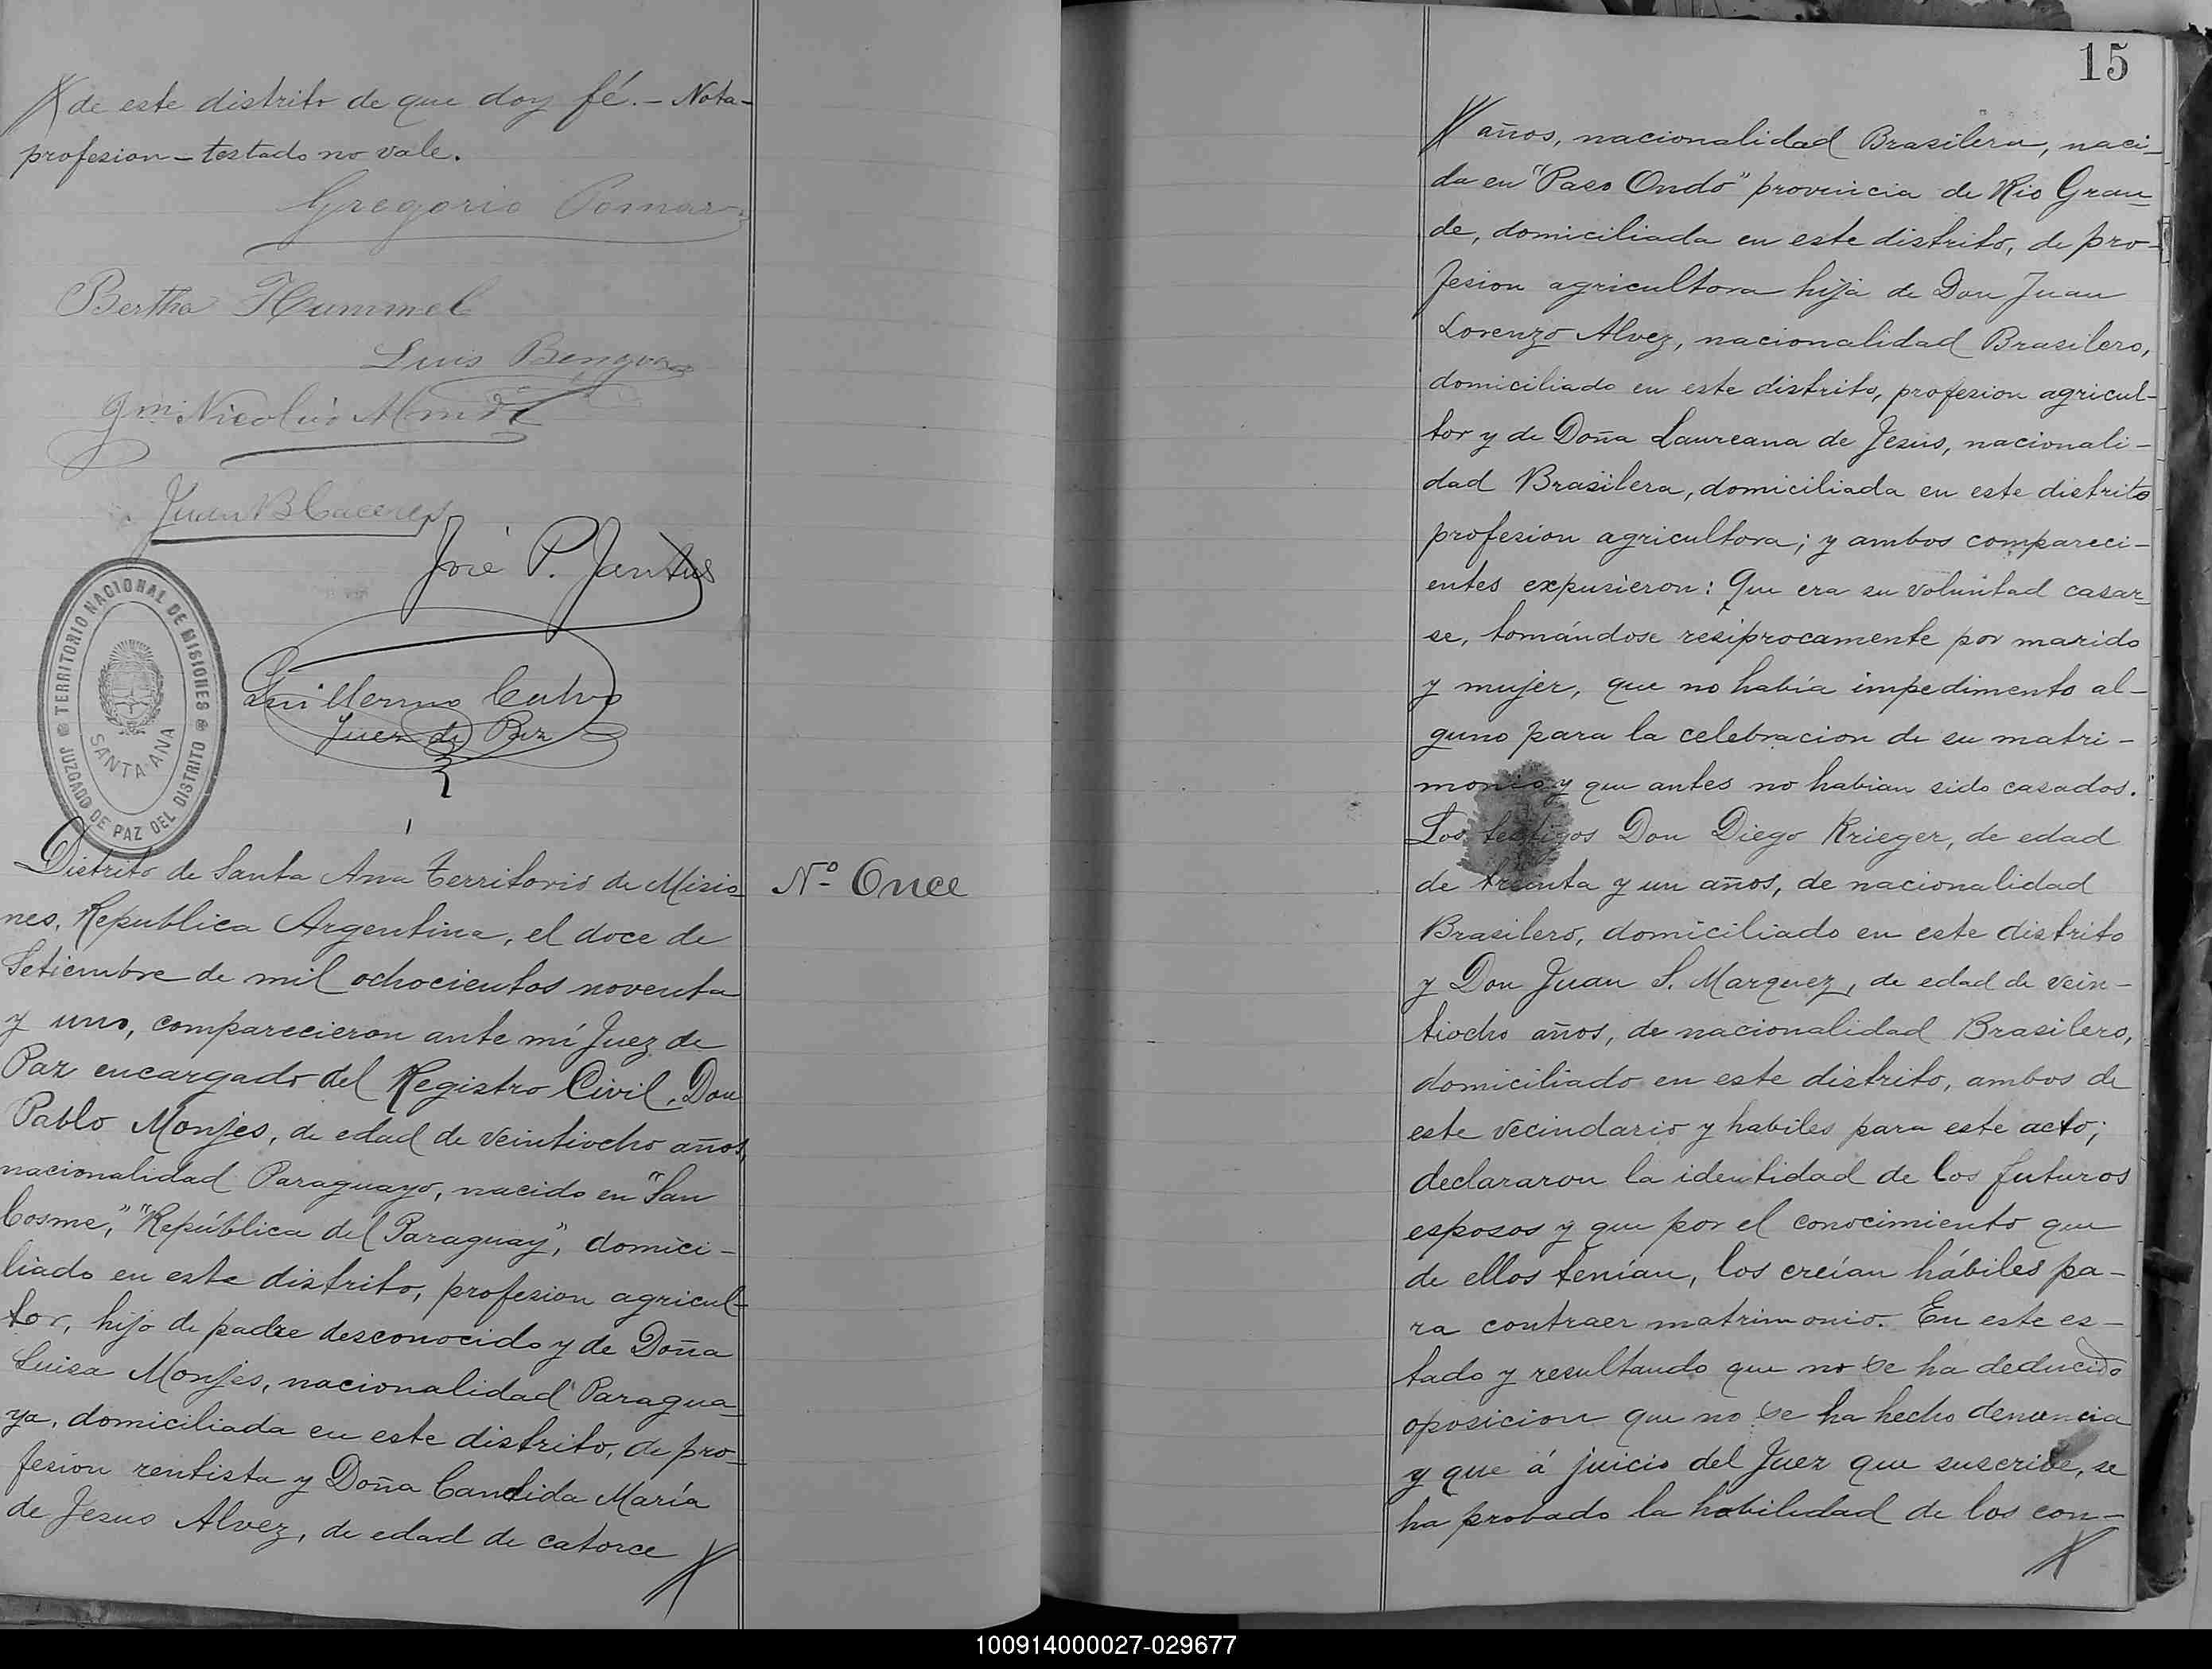 de este distrito de que doy fé. – Nota –
profesion – testado no vale.
Gregorio Pomar
Bertha Hummel
Luis
Nicolás
Juan B Caceres
José P. Jantus
Guillermo Calvo
Juez de Paz
TERRITORIO NACIONAL DE MISIONES
JUZGADO DE PAZ DEL DISTRITO
SANTA ANA
Distrito de Santa Ana Territorio de Misio
nes, Republica Argentina, el doce de
Setiembre de mil ochocientos noventa
y uno, comparecieron ante mí Juez de
Paz encargado del Registro Civil, Don
Pablo Monjes, de edad de veintiocho años,
nacionalidad Paraguayo, nacido en "San
Cosme," "República del Paraguay", domici–
liado en este distrito, profesion agricul–
tor, hijo de padre desconocido y de Doña
Luisa Monjes, nacionalidad Paragua–
ya, domiciliada en este distrito, de pro–
fesion rentista y Doña Candida María
de Jesus Alvez, de edad de catorce
Nº Once
15
años, nacionalidad Brasilera, naci–
da en "Paso Ondo" provincia de Rio Gran–
de, domiciliada en este distrito, de pro–
fesion agricultora hija de Don Juan
Lorenzo Alvez, nacionalidad Brasilero,
domiciliado en este distrito, profesion agricul–
tor y de Doña Laureana de Jesús, nacionali–
dad Brasilera, domiciliada en este distrito
profesion agricultora; y ambos compareci–
entes expusieron: Que era su voluntad casar–
se, tomándose resíprocamente por marido
y mujer, que no había impedimento al–
guno para la celebracion de su matri–
monio y que antes no habian sido casados.
Los testigos Don Diego Krieger, de edad
de treinta y un años, de nacionalidad
Brasilero, domiciliado en este distrito
y Don Juan S. Marquez, de edad de vein–
tiocho años, de nacionalidad Brasilero,
domiciliado en este distrito, ambos de
este vecindario y habiles para este acto;
declararon la identidad de los futuros
esposos y que por el conocimiento que
de ellos tenían, los creían hábiles pa–
ra contraer matrimonio. En este es–
tado y resultando que no se ha deducido
oposicion que no se ha hecho denuncia
y que á juicio del Juez que suscribe, se
ha probado la habilidad de los con–
100914000027-029677